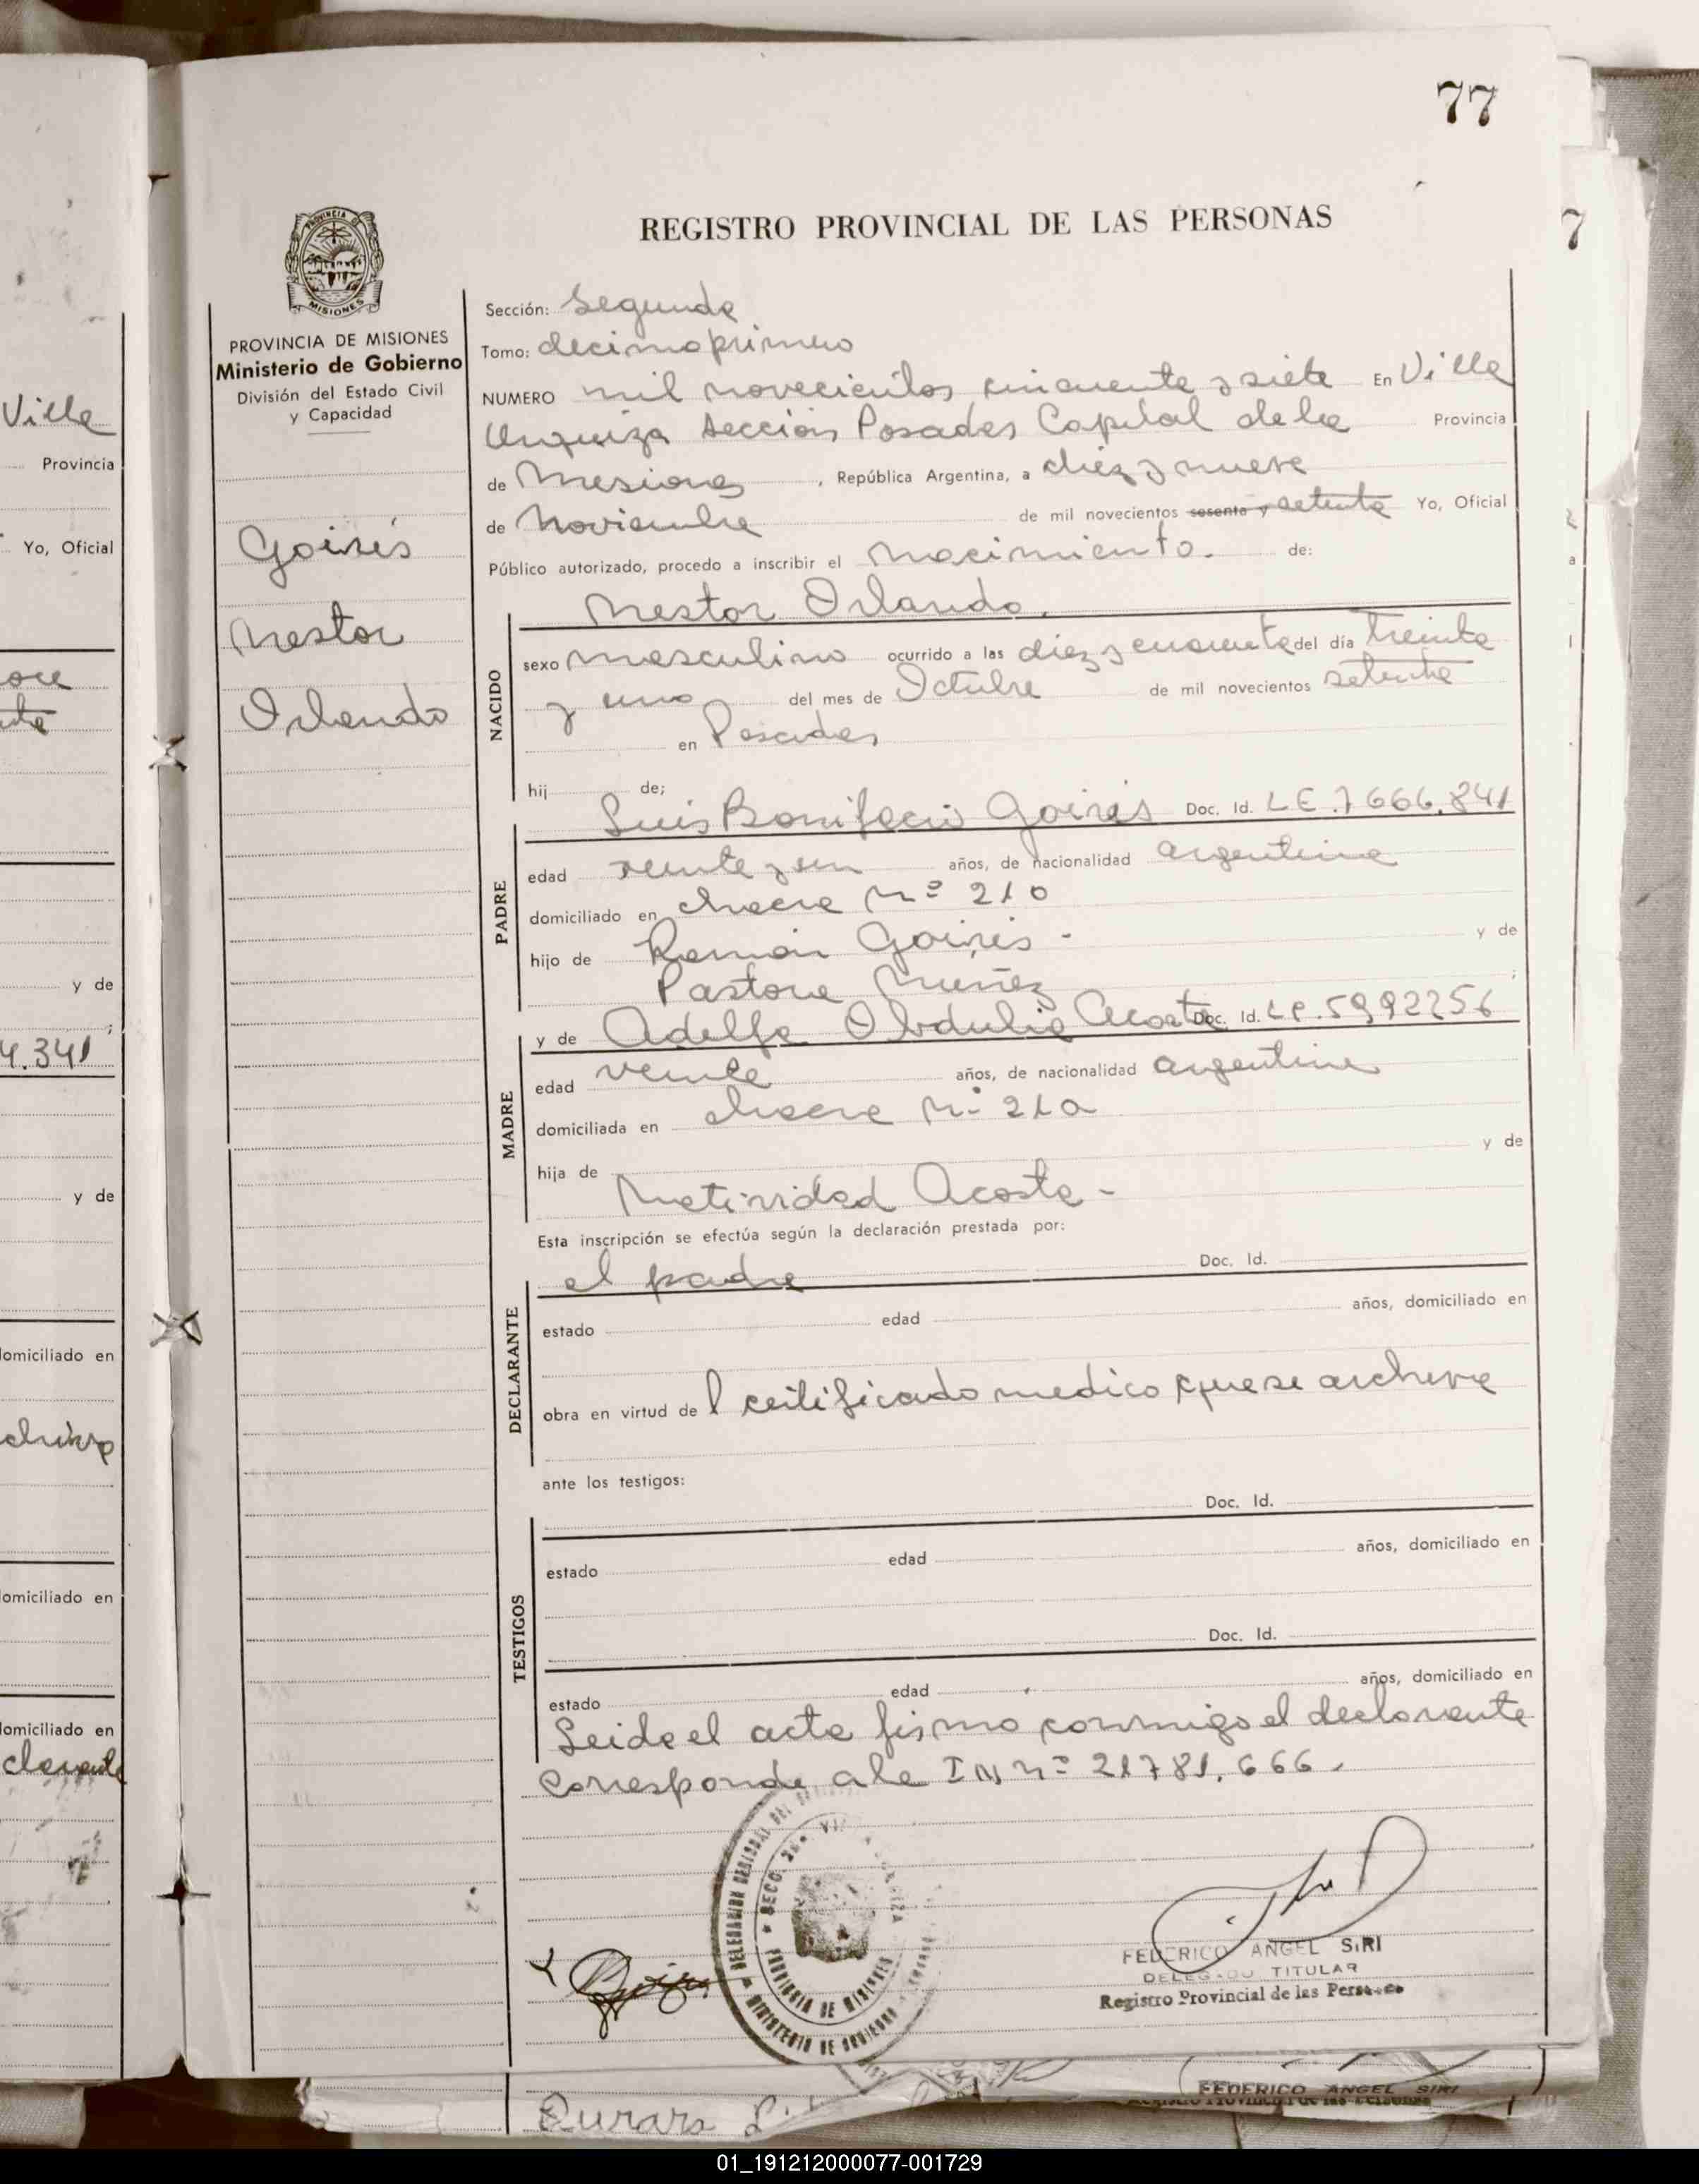 77
REGISTRO PROVINCIAL DE LAS PERSONAS
7
PROVINCIA DE
MISIONES
PROVINCIA DE MISIONES
Ministerio de Gobierno
División del Estado Civil
y Capacidad
Goirís
Nestor
Orlando
Sección: Segunda
Tomo: decimoprimero
NUMERO mil novecientos cincuenta y siete En Villa
Urquiza Sección Posadas Capital de la Provincia
de Misiones, República Argentina, a diez y nueve
de Noviembre de mil novecientos sesenta y setenta Yo, Oficial
Público autorizado, procedo a inscribir el nacimiento. de:
Nestor Orlando.
NACIDO
sexo masculino ocurrido a las diez y cuarenta del día treinta
y uno del mes de Octubre de mil novecientos setenta
en Posadas
hij de;
Luis Bonifacio Goirís Doc. Id. LE.7666.841
PADRE
edad veinte y un años, de nacionalidad argentina
domiciliado en chacra Nº 210
hijo de Ramón Goirís - y de
Pastora Muñez ;
y de Adelfa Obdulia Acosta Doc. Id. LC.5992256
MADRE
edad veinte años, de nacionalidad argentina
domiciliada en chacra Nº 210
hija de y de
Natividad Acosta -
Esta inscripción se efectúa según la declaración prestada por:
el padre Doc. Id.
DECLARANTE
estado edad años, domiciliado en
obra en virtud del certificado medico que se archiva
ante los testigos:
Doc. Id.
TESTIGOS
estado edad años, domiciliado en
Doc. Id.
estado edad años, domiciliado en
Leida el acta firmo conmigo el declarante
Corresponde a la IN nº 21781.666.
PROVINCIA DE MISIONES
MINISTERIO DE GOBIERNO
FEDERICO ANGEL SIRI
DELEGADO TITULAR
Registro Provincial de las Personas
FEDERICO ANGEL SIRI
Ville
Provincia
Yo, Oficial
y de
4.341
y de
domiciliado en
domiciliado en
domiciliado en
01_191212000077-001729